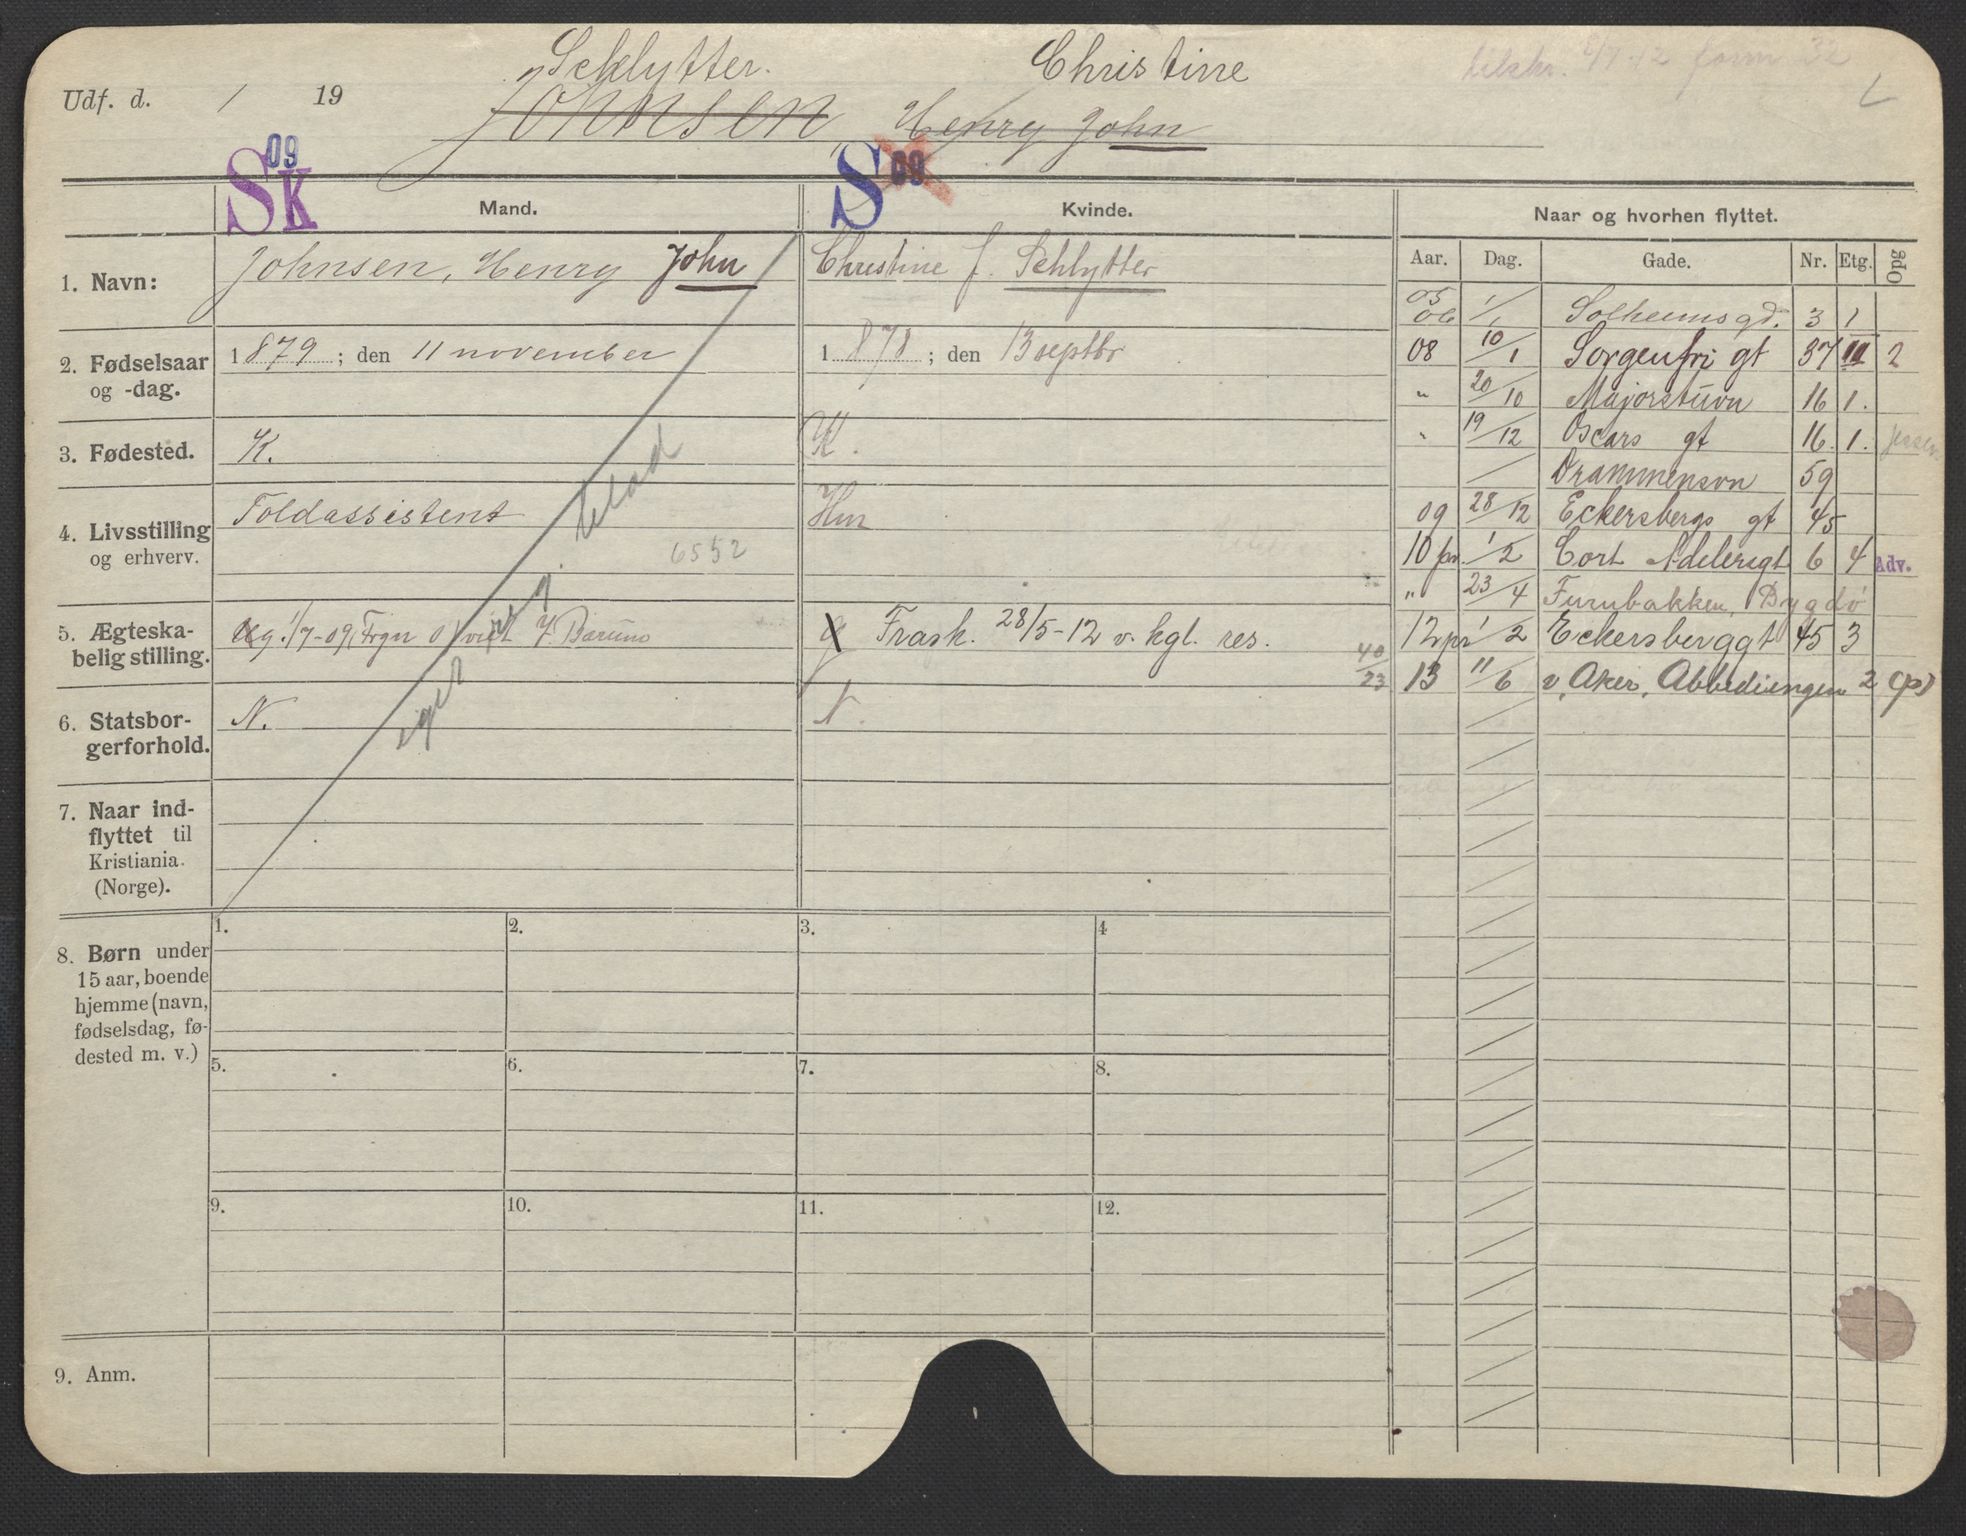 Schlytter. Christine
Udf. d. / 19 Johnsen, Henry John
tilskr. form 32
09 SK S 09
Mand. Kvinde. Naar og hvorhen flyttet.
Aar. Dag. Gade. Nr. Etg. Opg
1. Navn: Johnsen, Henry John Christine f. Schlytter
2. Fødselsaar og -dag. 1879; den 11 november 1878; den 13 septbr
3. Fødested. K. K.
4. Livsstilling og erhverv. Toldassistent Hm
6552
5. Ægteskabelig stilling. g. 1/7-09, Frgn V. Bærum g Frask. 28/5-12 v. kgl. res.
6. Statsborgerforhold. N. N.
eget reg. blad
7. Naar indflyttet til Kristiania. (Norge).
8. Børn under 15 aar, boende hjemme (navn, fødselsdag, fødested m. v.)
1. 2. 3. 4
5. 6. 7. 8.
9. 10. 11. 12.
9. Anm.
05
06 1/1 Solheimsgd. 3 1
08 10/1 Sorgenfri gt 37 III 2
" 20/10 Majorstuvn 16 1.
" 19/12 Oscars gt 16. 1.
Drammensvn 59
09 28/12 Eckersbergs gt 45
10 pr. 1/2 Cort Adelersgt 6 4 Adv.
" 23/4 Furubakken, Bygdø
12 pr 1/2 Eckersberggt 45 3
40/23
13 11/6 v. Aker, Abbediengen 2 (p)